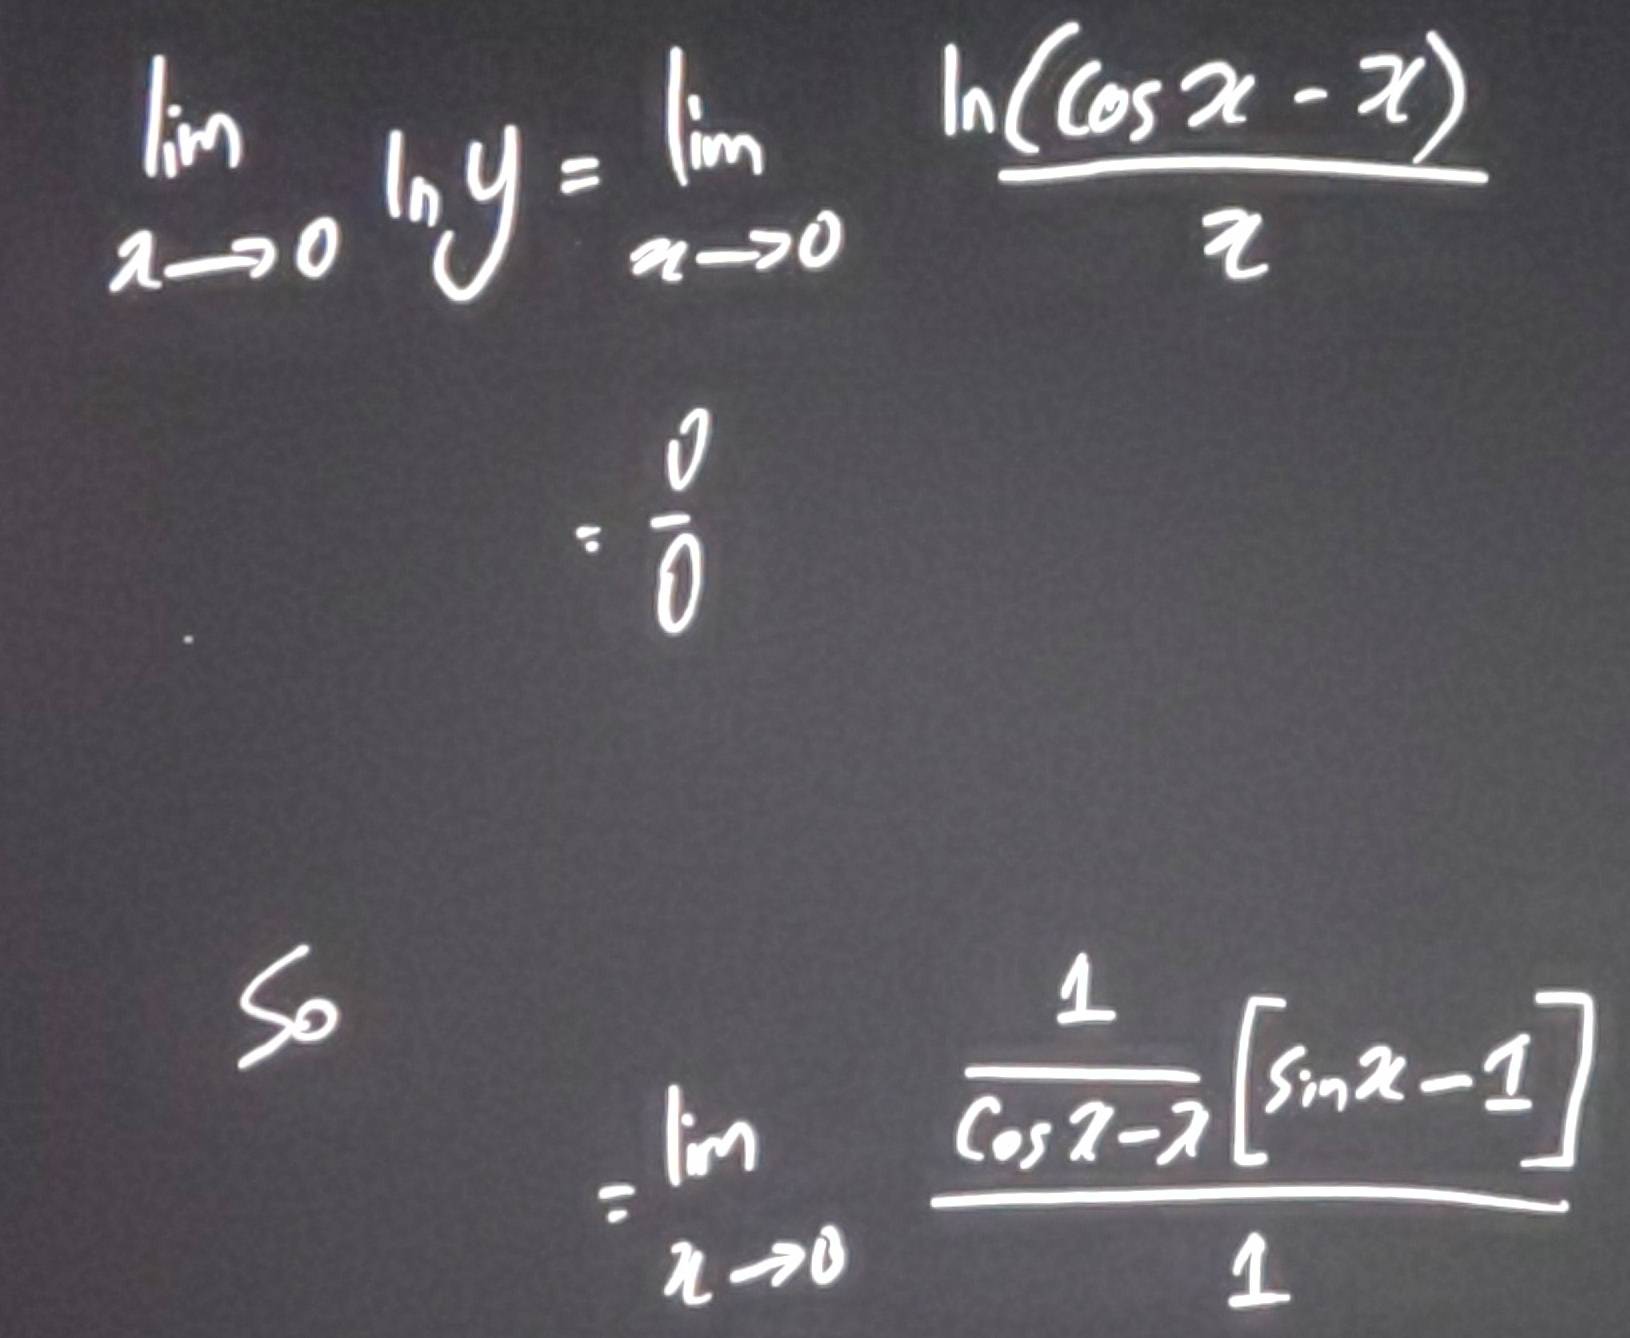 lim x→0 ln y = lim x→0 ln(cos x - x) / x
= 0/0
So
= lim x→0 1/(cos x - x) [sin x - 1] / 1